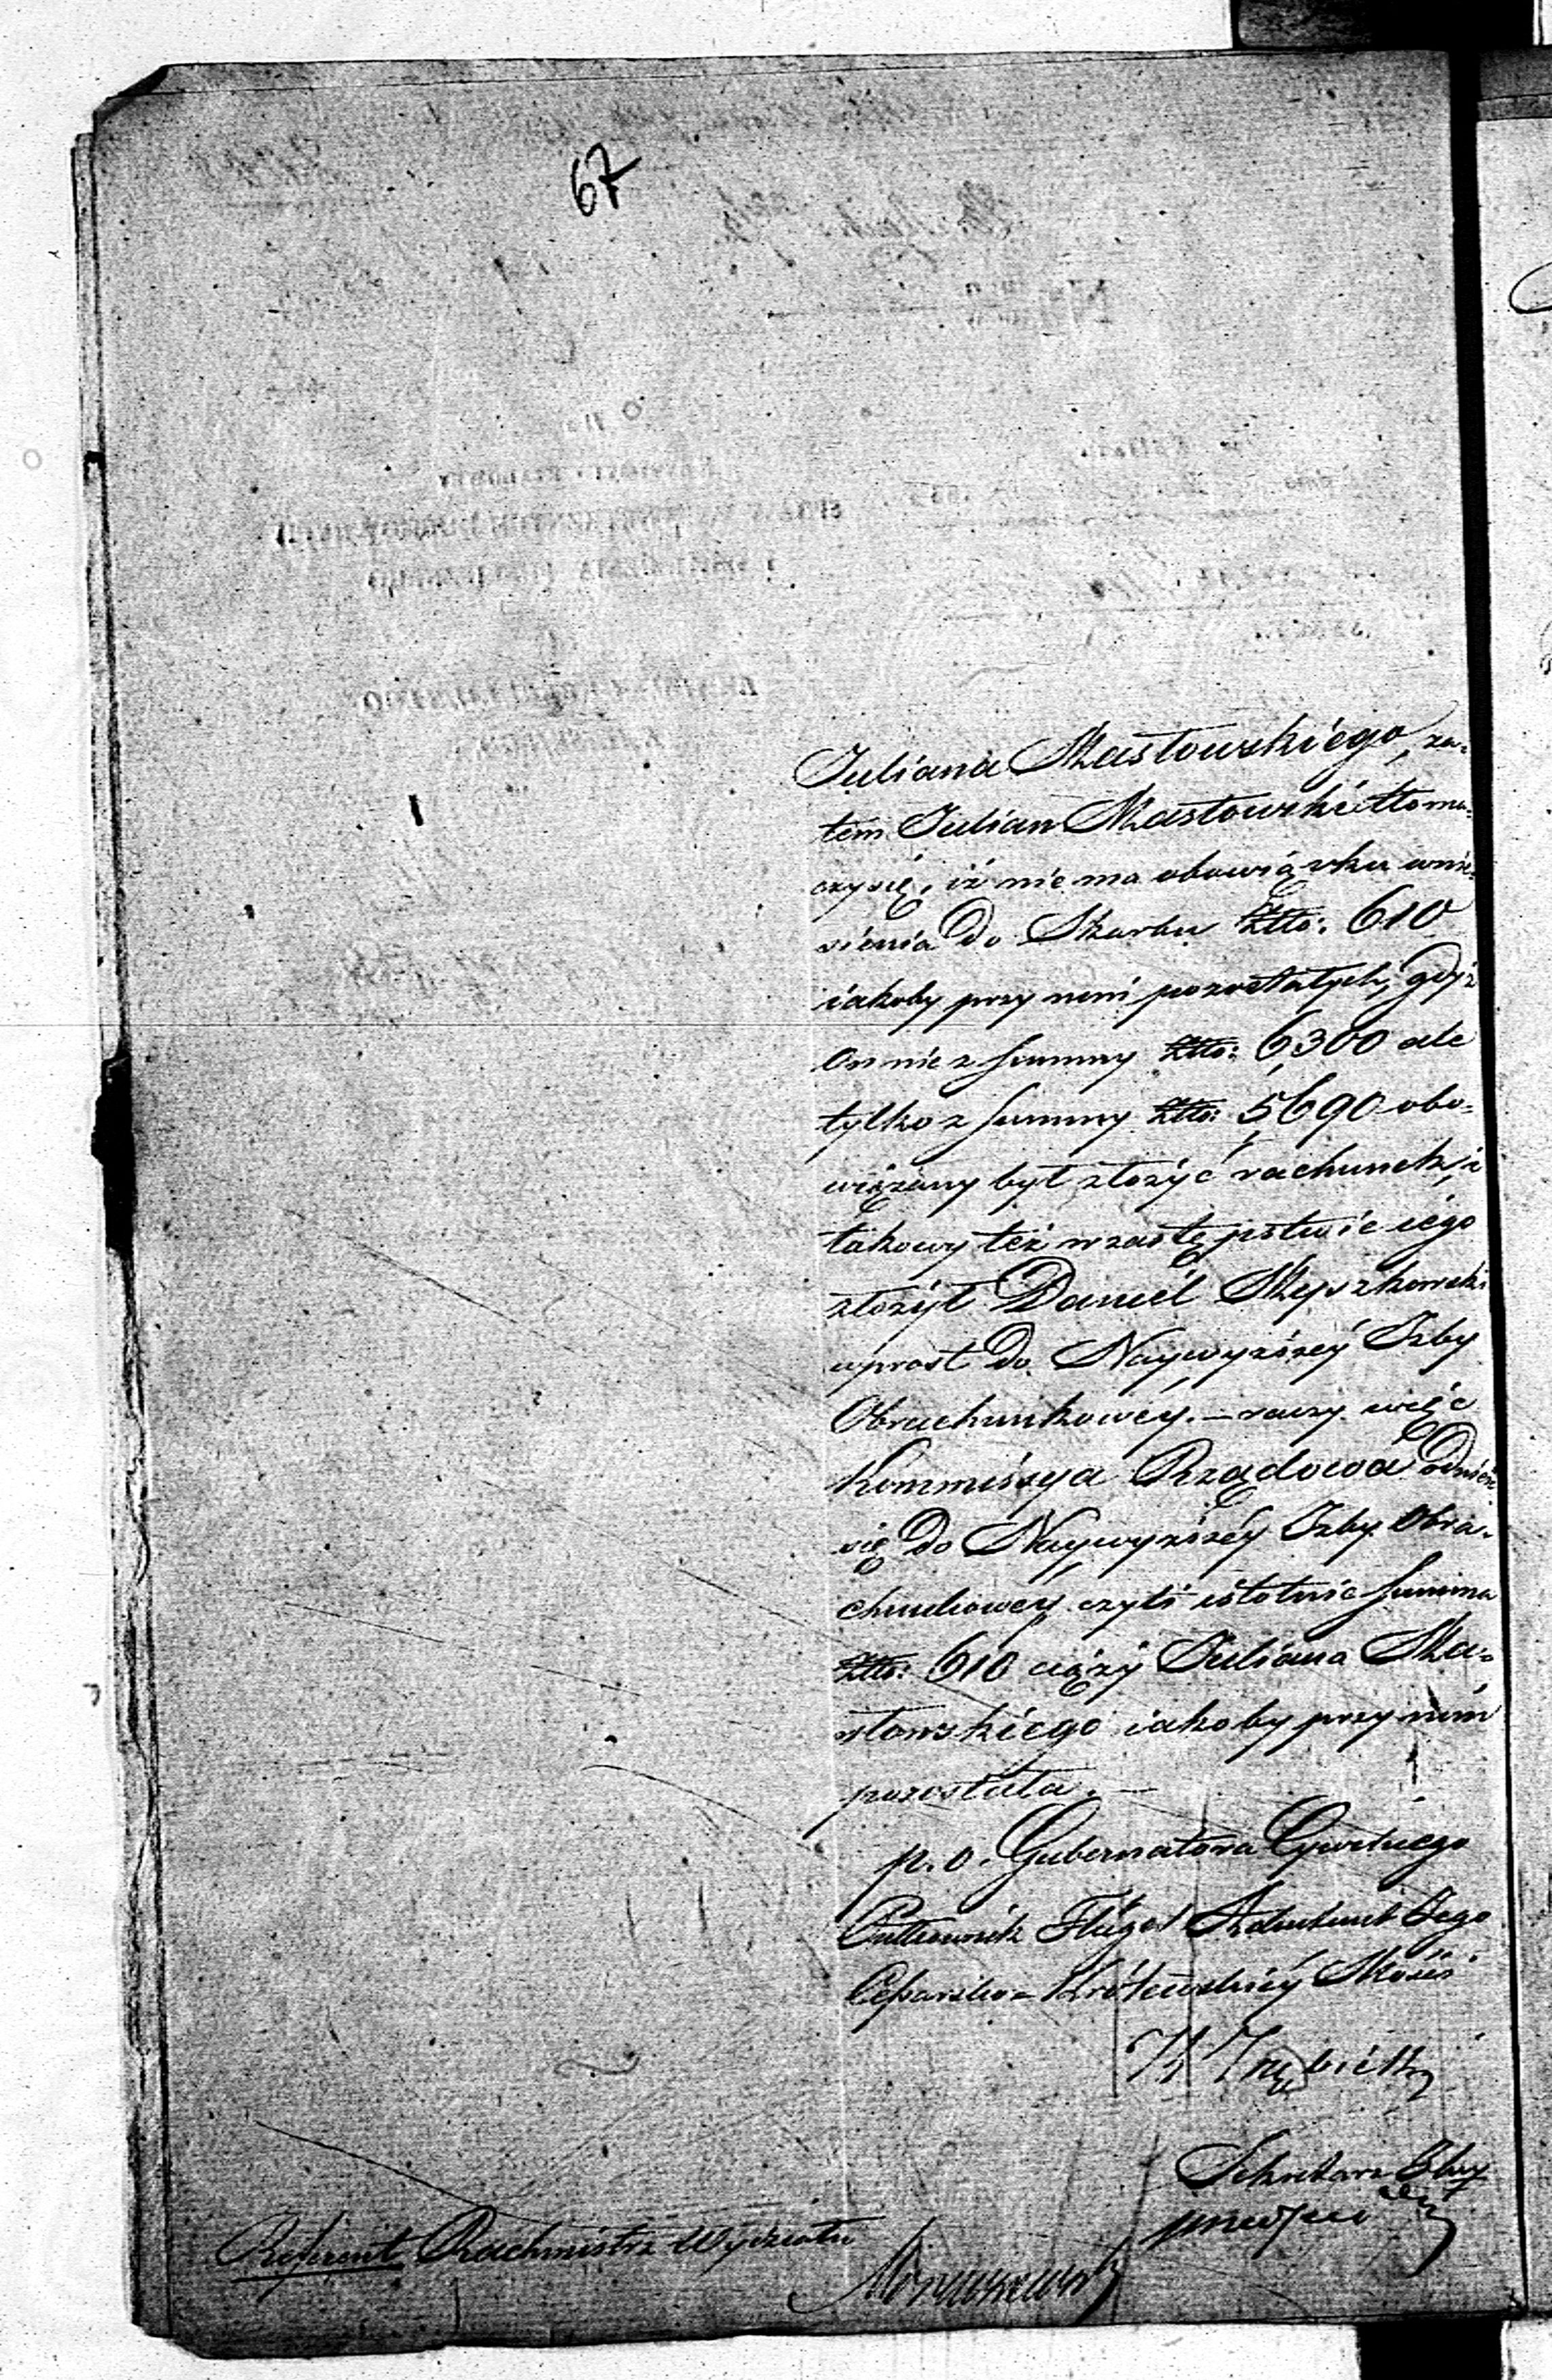 67
Juliana Masłowskiego, za-
tem Julian Masłowski tłoma-
czy się, iż nie ma obowiązku wnie-
sienia do Skarbu Złlo: 610
iakoby przy nim pozostałych, gdyż
on nie z summy Złlo: 6300 ale
tylko z summy Złlo: 5690 obo-
wiązany był złożyć rachunek, i
takowy też w zastępstwie iego
złożył Daniel Myszkowski
wprost do Naywyższéy Izby
Obrachunkowéy. — raczy więc
Kommissya Rządowa odnieść
się do Naywyższéy Izby Obra-
chunkowéy czyli istotnie summa
Złlo: 610 ciąży Juliana Ma-
słowskiego iakoby przy nim
pozostała. —
p. o. Gubernatora Cywilnego
Pułkownik Fligel Adiutant Jego
Cesarsko-Królewskiéy Mości
Sekretarz
Referent Rachmistrz Wydziału